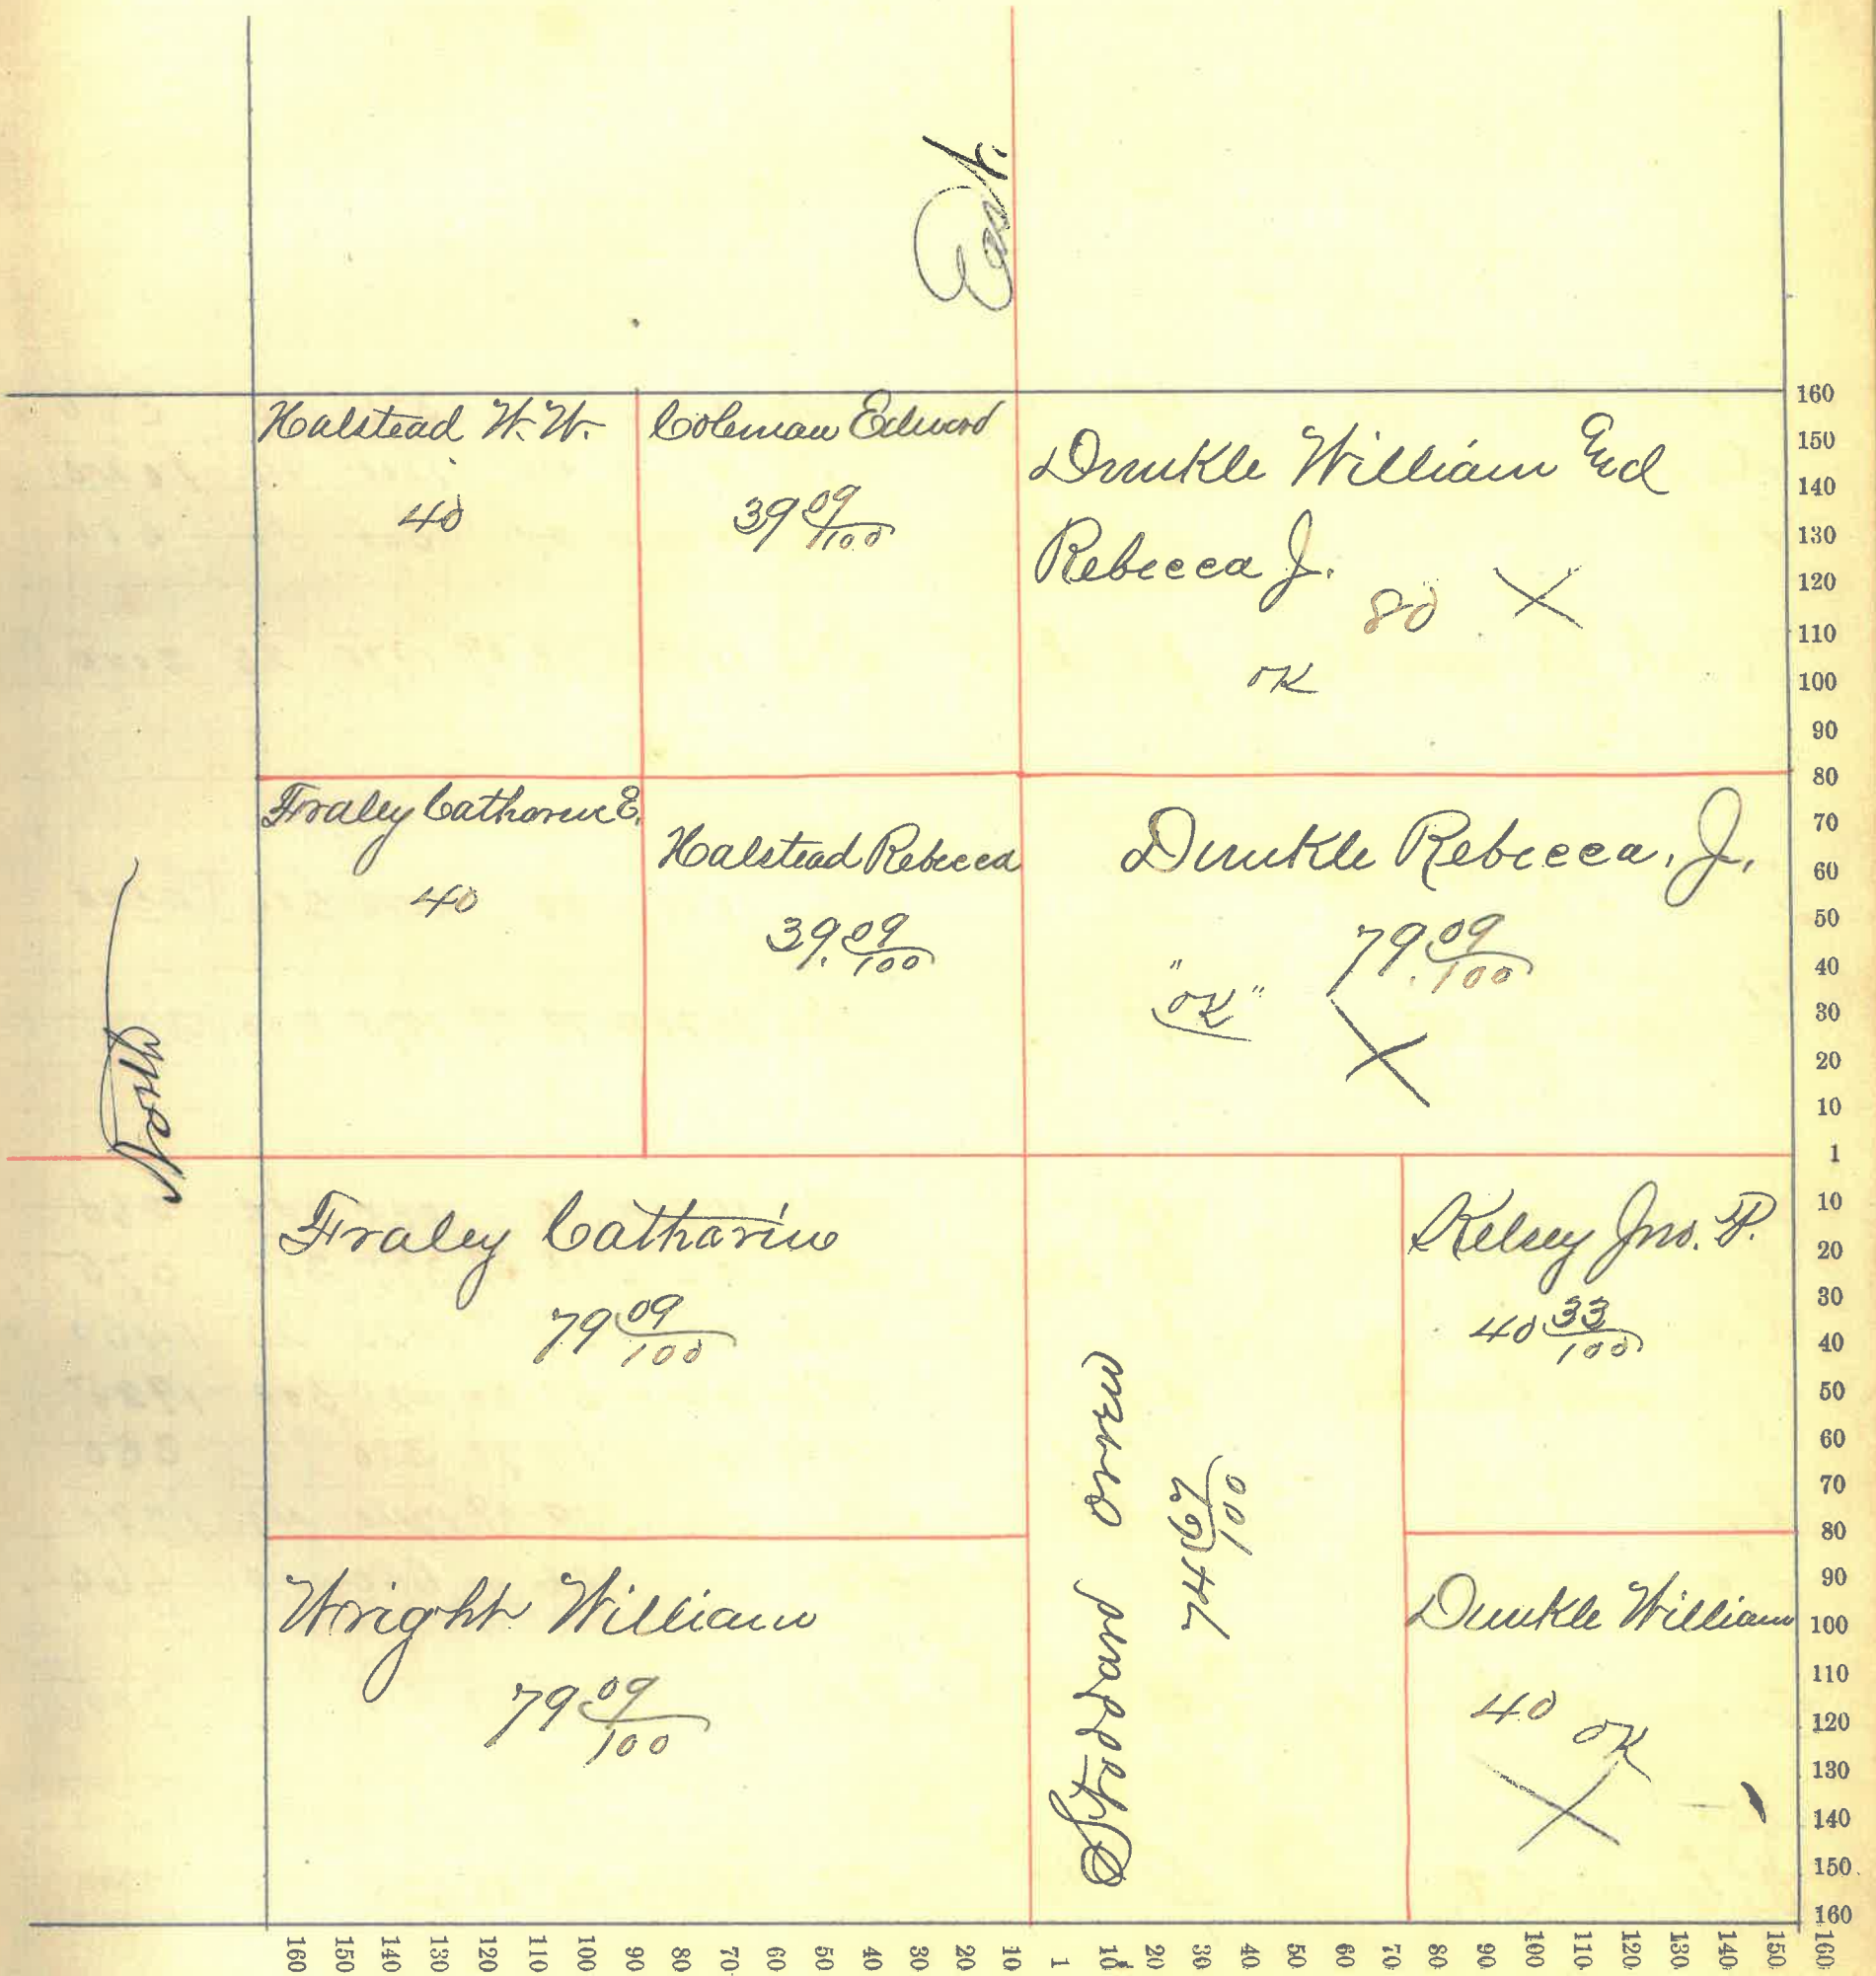 East
North
Halstead W. W.
40
Coleman Edward
39 09/100
Dunkle William End
Rebecca J.
80 X
OK
Fraley Catharine E.
40
Halstead Rebecca
39. 09/100
Dunkle Rebecca. J.
79. 09/100
"OK"
X
Fraley Catharine
79 09/100
Wright William
79 09/100
Stoddard Orrren
Kelsey Jno. P.
40 33/100
Dunkle William
40 OK
X
160
150
140
130
120
110
100
90
80
70
60
50
40
30
20
10
1
10
20
30
40
50
60
70
80
90
100
110
120
130
140
150
160
160 150 140 130 120 110 100 90 80 70 60 50 40 30 20 10 1 10 20 30 40 50 60 70 80 90 100 110 120 130 140 150 160